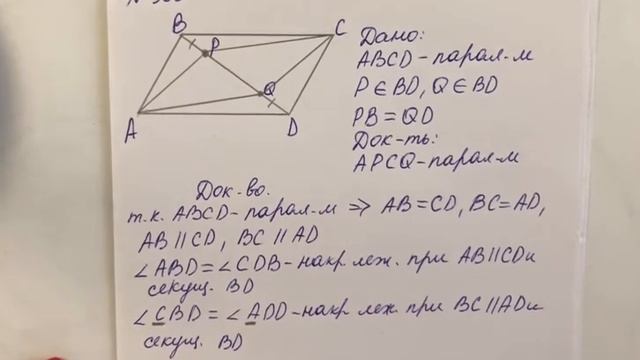 B
C
P
Q
A
D
Дано:
ABCD-парал-м
P∈BD, Q∈BD
PB=QD
Док-ть:
APCQ-парал-м
Док-во.
т.к. ABCD-парал-м => AB=CD, BC=AD,
AB||CD, BC||AD
∠ABD=∠CDB-накр леж. при AB||CD и
секущ. BD
∠CBD=∠ADD-накр леж. при BC||AD и
секущ. BD